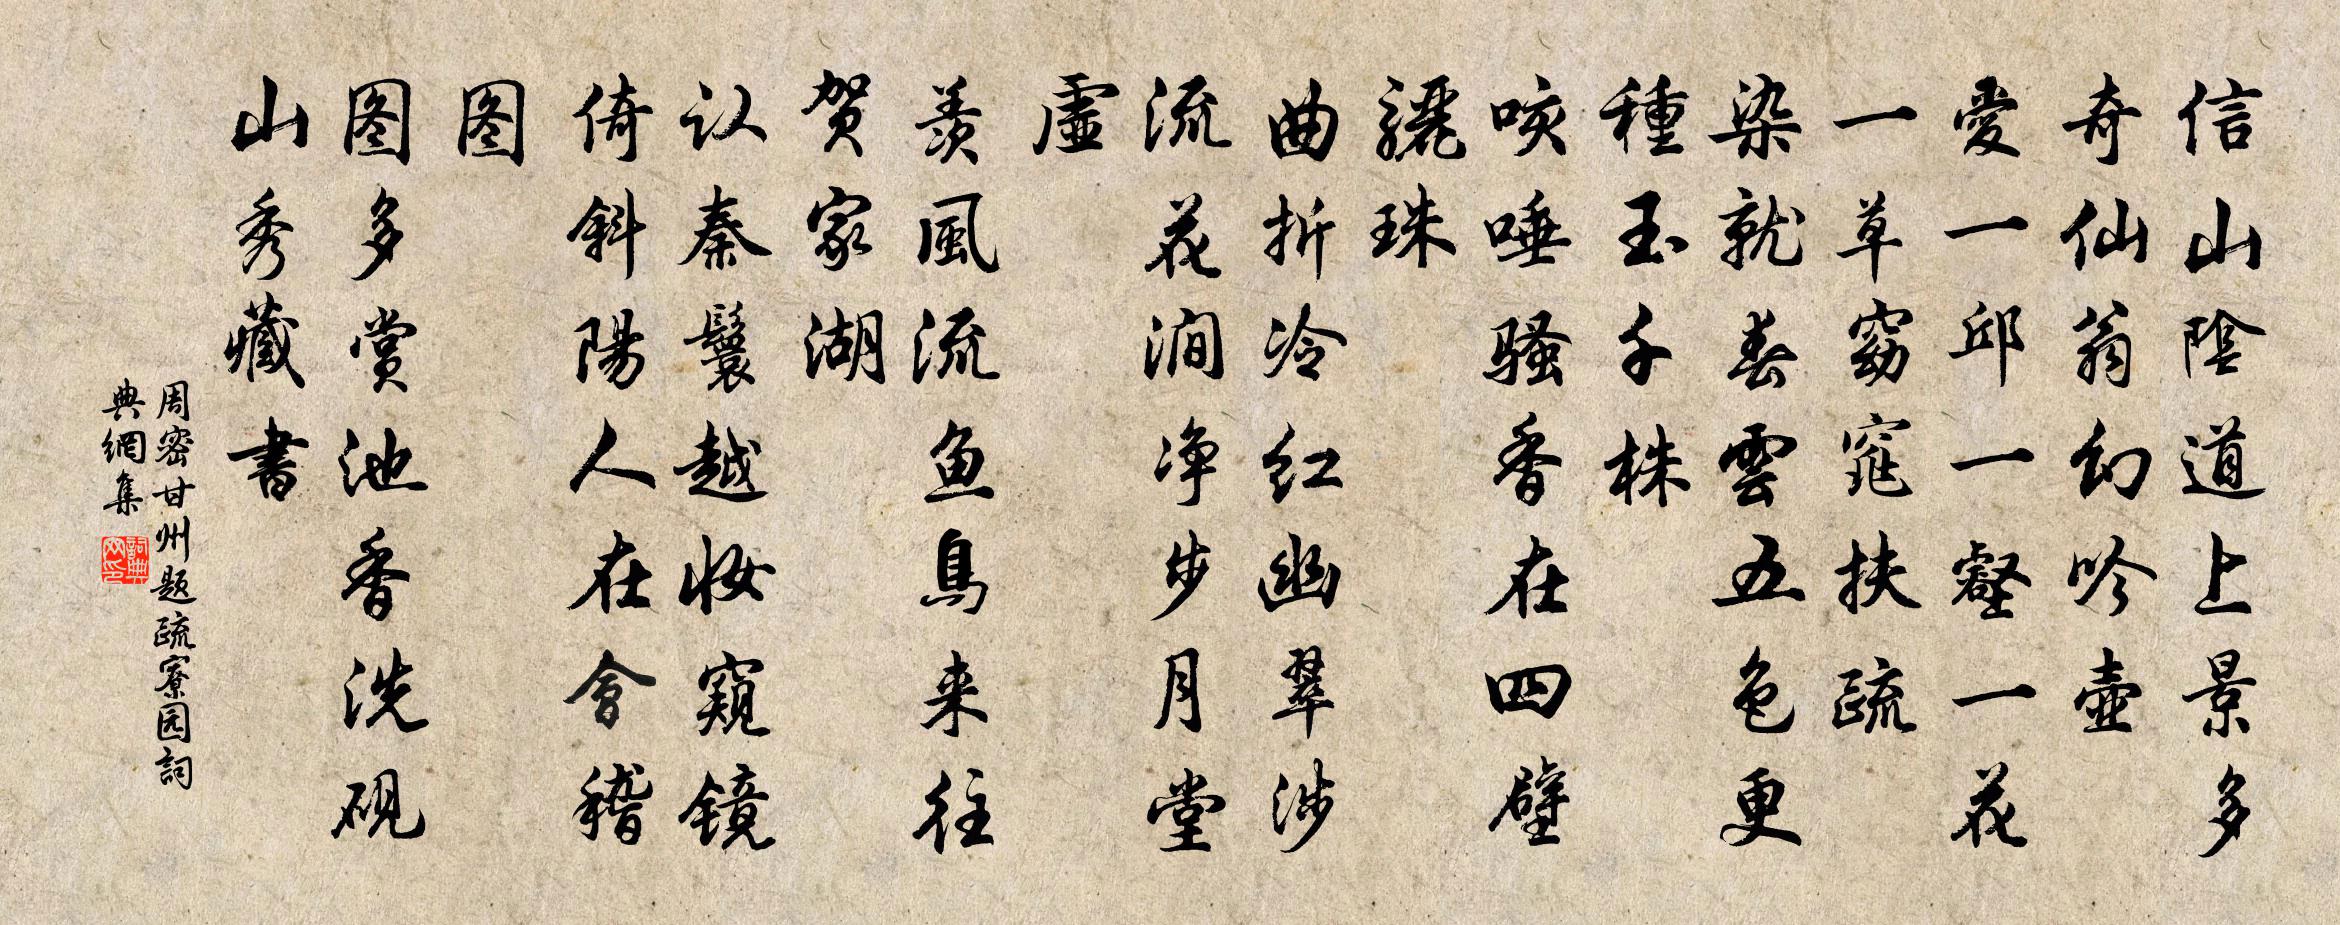 信山陰道上景多
奇仙翁幻吟壺
愛一邱一壑一花
一草窈窕扶疏
染就春雲五色更
種玉千株
咳唾骚香在四壁
驪珠
曲折冷红幽翠涉
流花涧净步月堂
虛
羨風流魚鳥来往
贺家湖
认秦鬟越妆窺镜
倚斜陽人在會稽
图
图多赏池香洗砚
山秀藏書
周密甘州题疏寮园詞
典網集
詞典网印